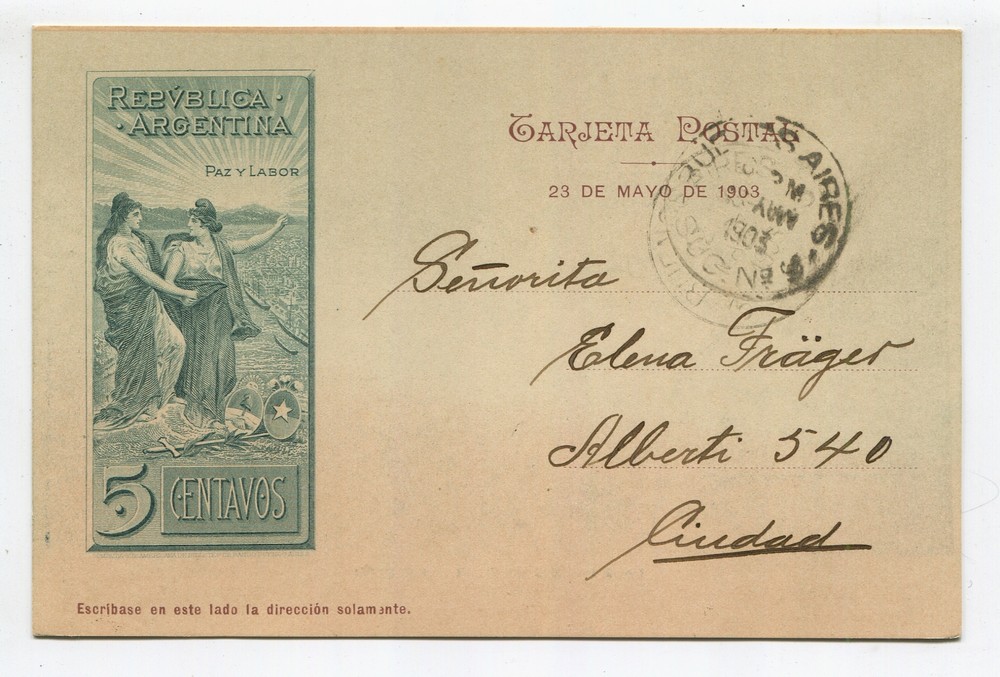 REPVBLICA
ARGENTINA
PAZ Y LABOR
5 CENTAVOS
TARJETA POSTAL
23 DE MAYO DE 1903
BUENOS AIRES
1903
Señorita
Elena Fräger
Alberti 540
Ciudad
Escríbase en este lado la dirección solamente.